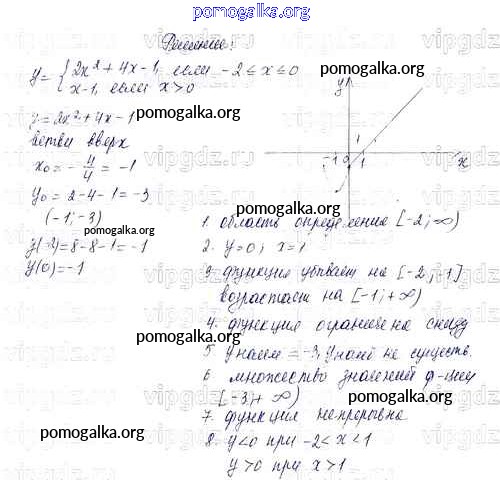 pomogalka.org
Решение:
y = { 2x² + 4x - 1, если -2 ≤ x ≤ 0
x - 1, если x > 0
pomogalka.org
y = 2x² + 4x - 1
pomogalka.org
ветви вверх
x₀ = - 4/4 = -1
y₀ = 2 - 4 - 1 = -3
(-1; -3)
pomogalka.org
y(-2) = 8 - 8 - 1 = -1
y(0) = -1
y
1
-1 0 1 x
pomogalka.org
1. область определения [-2; ∞)
2. y = 0, x = 1
pomogalka.org
3. функция убывает на [-2; -1]
возрастает на [-1; +∞)
4. функция ограничена снизу
pomogalka.org
5. y наим = -3, y наиб не существ.
6. множество значений ф-ции
pomogalka.org
[-3; +∞)
7. функция непрерывна
pomogalka.org
8. y < 0 при -2 < x < 1
pomogalka.org
y > 0 при x > 1